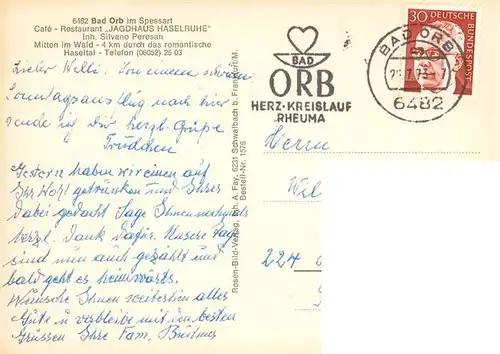 6482 Bad Orb im Spessart
Café - Restaurant "JAGDHAUS HASELRUHE"
Inh. Silvano Peresan
Mitten im Wald - 4 km durch das romantische
Haseltal - Telefon (06052) 25 03
Lieber Willi! Von einem schönen
Sonntagsausflug nach hier
sende ich Dir herzl. Grüße
Trudchen
Gestern haben wir einen auf
Ihr Wohl getrunken und Ihrer
dabei gedacht Sage Ihnen nochmals
herzl. Dank dafür. Unsere Tage
sind nun auch gezählt und
bald geht es heimwärts.
Wünsche Ihnen weiterhin alles
Gute u verbleibe mit den besten
Grüssen Ihre Fam.
Rosen-Bild-Verlag, Inh. A. Fay, 6231 Schwalbach b. Frankfurt/M.
Bestell-Nr. 1576
BAD
ORB
HERZ·KREISLAUF
RHEUMA
BAD ORB
6482
30
DEUTSCHE
BUNDESPOST
Herrn
Wil
224